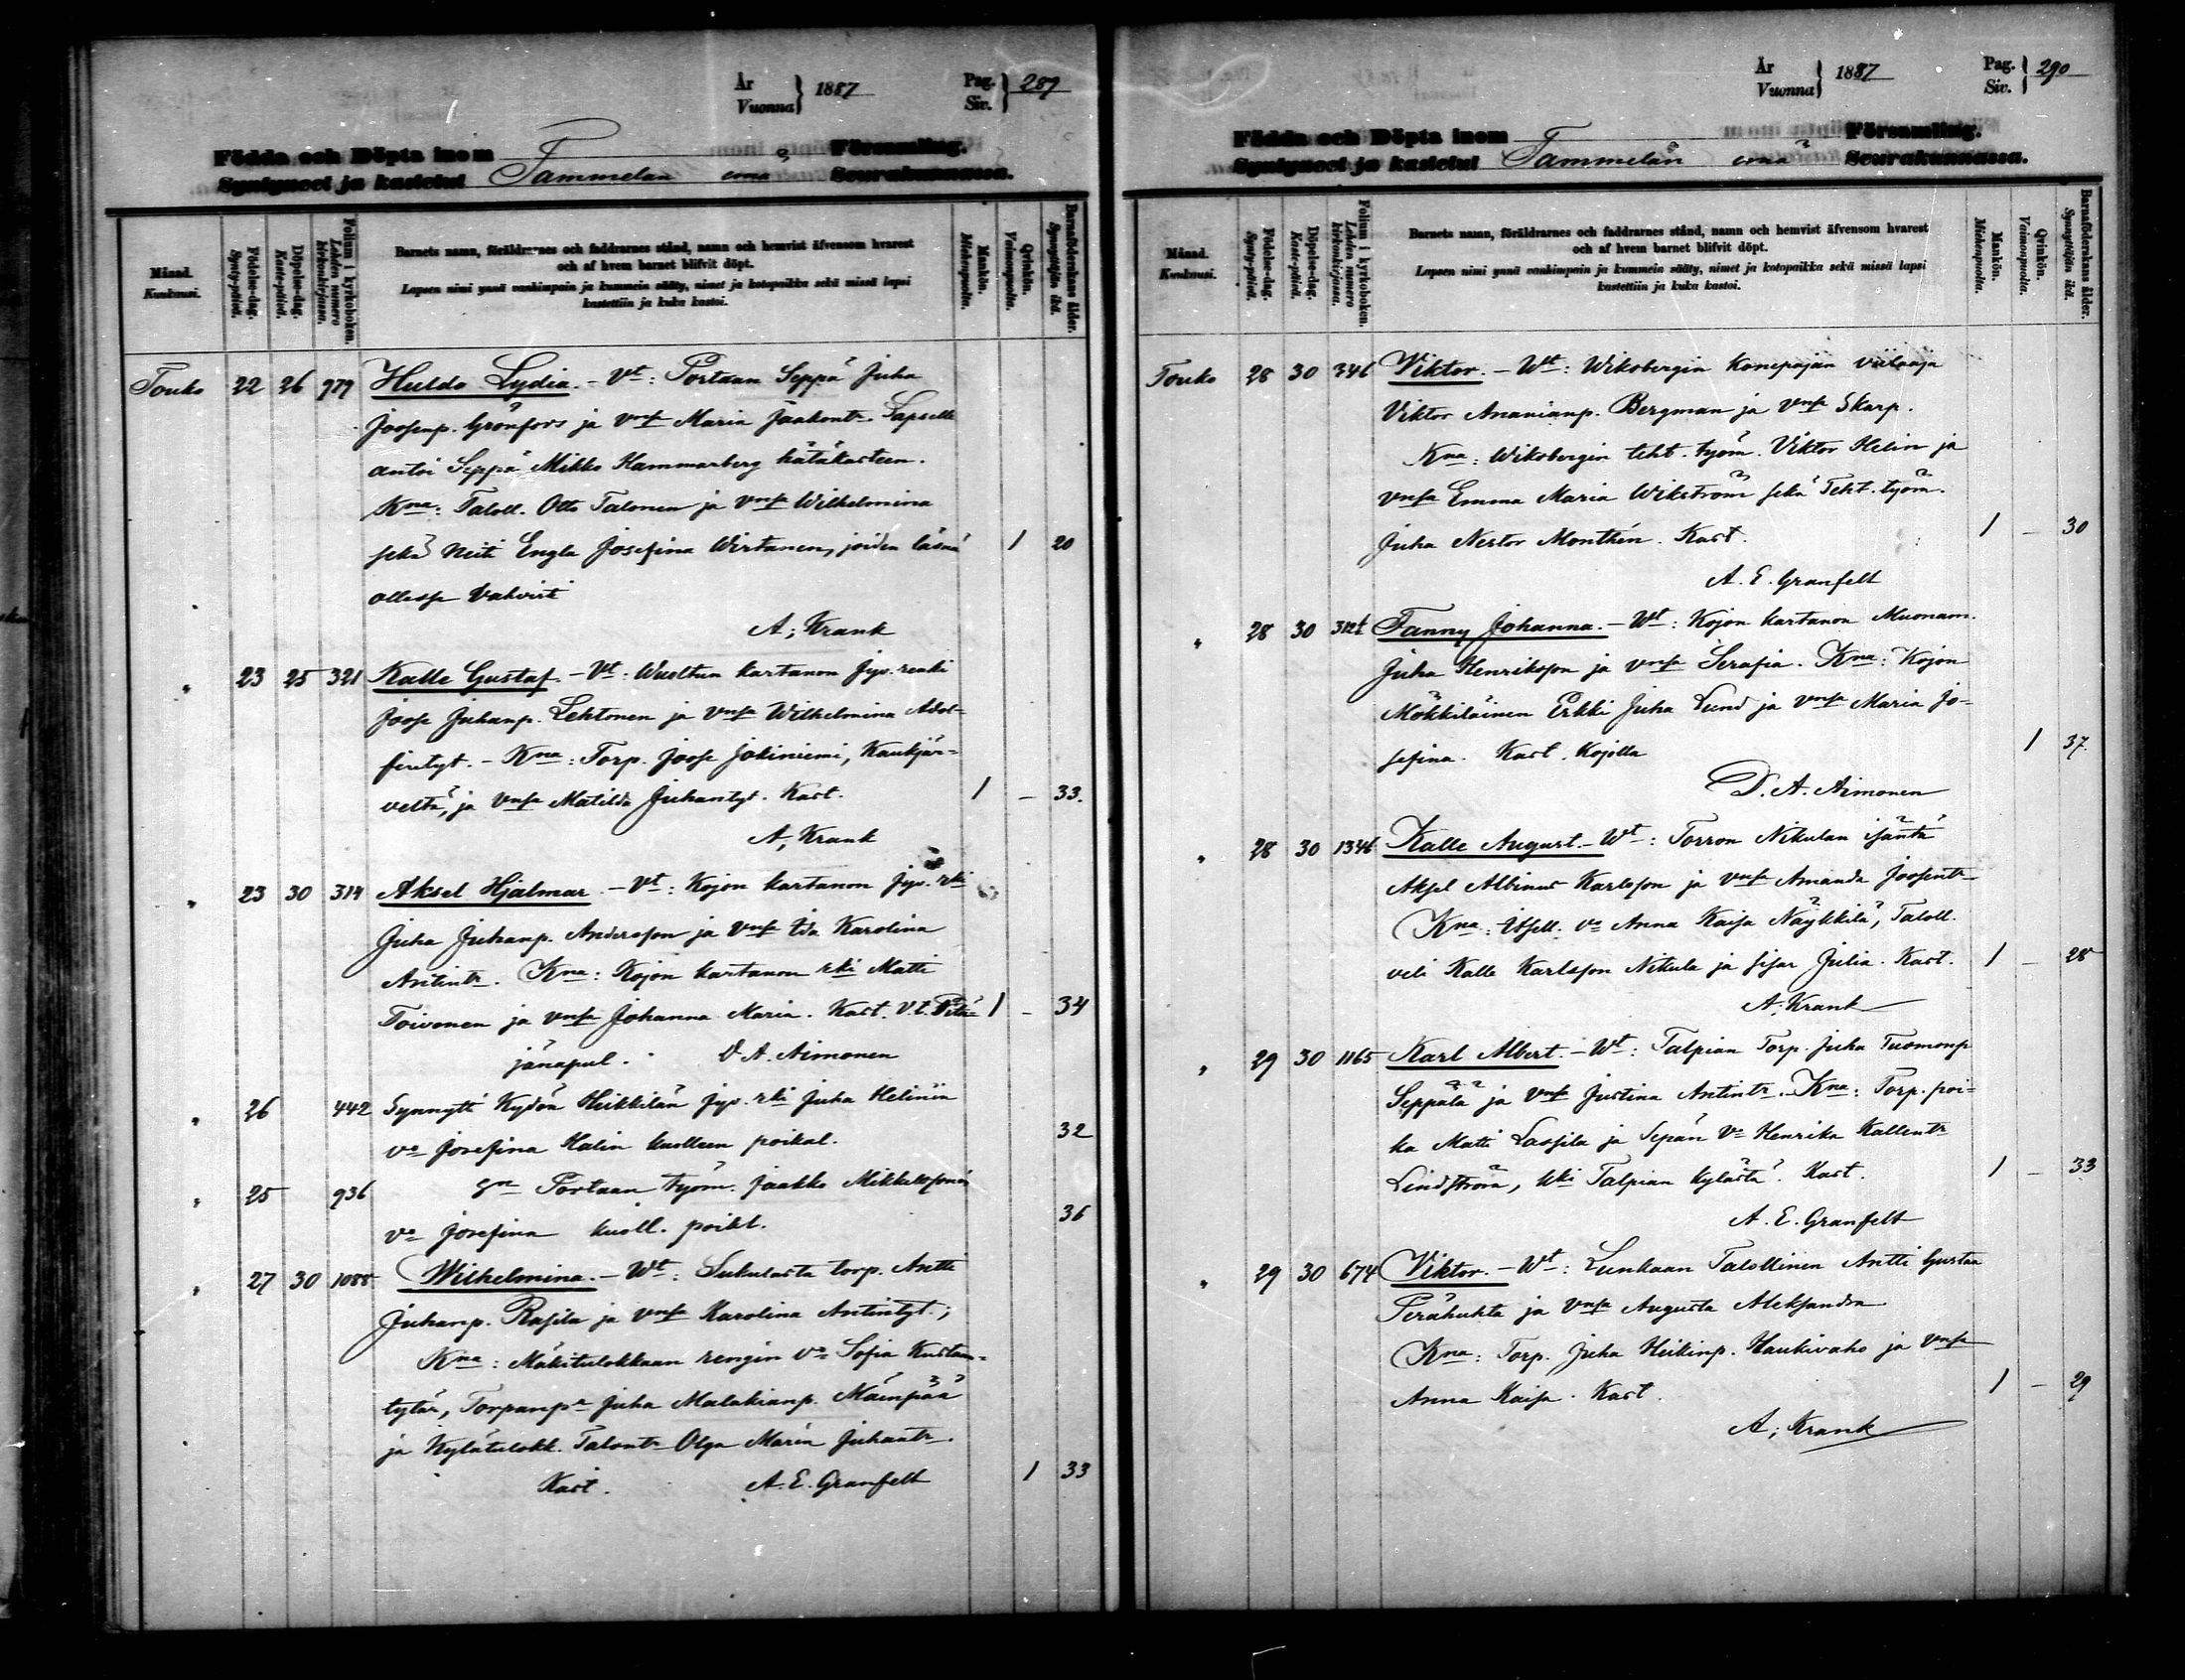 År
Vuonna } 1887
Pag.
Siv. } 289
Födda och Döpta inom Församling.
Syntyneet ja kastetut Tammelan emä Seurakunnassa.
Månad.
Kuukausi.
Födelse-dag.
Synty-päivä.
Döpelse-dag.
Kaste-päivä.
Folium i kyrkoboken.
Lehden numero kirkonkirjassa.
Barnets namn, föräldrarnes och faddrarnes stånd, namn och hemvist äfvensom hvarest
och af hvem barnet blifvit döpt.
Lapsen nimi ynnä vanhimpain ja kummein sääty, nimet ja kotopaikka sekä missä lapsi
kastettiin ja kuka kastoi.
Mankön.
Miehenpuolta.
Qvinkön.
Vaimonpuolta.
Barnaföderskans ålder.
Synnyttäjän ikä.
Touko 22 26 979 Huldo Lydia. - Vt: Portaan Seppä Juha
Joosenp. Grönfors ja vmsa Maria Jaakontr. Lapselle
antoi Seppä Mikko Hammarberg hätäkasteen.
Kna: Taloll. Otto Talonen ja vmsa Wilhelmina
sekä Neiti Engla Josefina Wirtanen, joiden läsnä 1 20
ollessa vahvisti
A; Krank
" 23 25 321 Kalle Gustaf. - Vt: Wuoltun kartanon jyv. renki
Joose Juhanp. Lehtonen ja vmsa Wilhelmina Adol-
fintyt. - Kna: Torp. Joose Jokiniemi, Kaukjär-
veltä, ja vmsa Matilda Juhantyt. Kast. 1 - 33.
A; Krank
" 23 30 314 Aksel Hjalmar. - Vt: Kojon kartanon jyv. rki
Juha Juhanp. Andersson ja vmsa Ida Karolina
Antintr. Kna: Kojon kartanon rki Matti
Toivonen ja vmsa Johanna Maria. Kast. V.t. Pitä- 1 - 34
jänapul. D. A. Aimonen
" 26 442 Synnytti Kydön Heikkilän jyv. rki Juha Helinin
va Josefina Halin kuolleen poikal. 32
" 25 936 Sn Portaan työm. Jaakko Mikkelssonin
va Josefina kuoll. poikl. 36
" 27 30 1088 Wilhelmina. - Wt: Sukulasta torp. Antti
Juhanp. Rasila ja vmsa Karolina Antintyt.;
Kna: Mäkitulokkaan rengin va Sofia Kustaan-
tytär, Torpanpa Juha Malakianp. Mäenpää
ja Kylätulokk. Talontr. Olga Maria Juhantr.
Kast. A. E. Granfelt 1 33
År
Vuonna } 1887
Pag.
Siv. } 290
Födda och Döpta inom Församling.
Syntyneet ja kastetut Tammelan emä Seurakunnassa.
Månad.
Kuukausi.
Födelse-dag.
Synty-päivä.
Döpelse-dag.
Kaste-päivä.
Folium i kyrkoboken.
Lehden numero kirkonkirjassa.
Barnets namn, föräldrarnes och faddrarnes stånd, namn och hemvist äfvensom hvarest
och af hvem barnet blifvit döpt.
Lapsen nimi ynnä vanhimpain ja kummein sääty, nimet ja kotopaikka sekä missä lapsi
kastettiin ja kuka kastoi.
Mankön.
Miehenpuolta.
Qvinkön.
Vaimonpuolta.
Barnaföderskans ålder.
Synnyttäjän ikä.
Touko 28 30 346 Viktor. - Wt: Wiksbergin Konepajan viilaaja
Viktor Ananianp. Bergman ja vmsa Skarp.
Kna: Wiksbergin teht. työm. Viktor Helin ja
vmsa Emma Maria Wikström sekä Teht. työm.
Juha Nestor Monthén. Kast. 1 - 30
A. E. Granfelt
" 28 30 312½ Fanny Johanna. - Wt: Kojon kartanon Muonam.
Juha Henriksson ja vmsa Serafia. Kna: Kojon
Mökkiläinen Erkki Juha Lund ja vmsa Maria Jo-
sefina. Kast. Kojolla 1 37.
D. A. Aimonen
" 28 30 1346 Kalle August. - Wt: Torron Nikulan isäntä
Aksel Albinus Karlsson ja vmsa Amanda Joosentr.
Kna: Itsell. va Anna Kaisa Näykkilä, Taloll.
veli Kalle Karlsson Nikula ja sisar Julia. Kast. 1 - 28
A; Krank
" 29 30 1165 Karl Albert. - Wt: Talpian Torp. Juha Tuomonp
Seppälä ja vmsa Justina Antintr. Kna: Torp. poi-
ka Matti Lassila ja Sepän va Henrika Kallentr
Lindström, kki Talpian kylästä. Kast. 1 - 33
A. E. Granfelt
" 29 30 674 Viktor. - Wt: Lunkaan Talollinen Antti Gustaa
Perähuhta ja vmsa Augusta Aleksandra
Kna: Torp. Juha Heikinp. Haukivaho ja vmsa
Anna Kaisa. Kast. 1 - 29
A; Krank